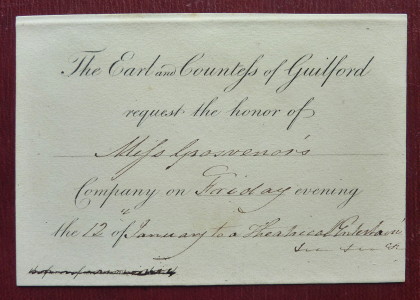 The Earl and Countess of Guilford
request the honor of
Miss Grosvenor's
Company on Friday evening
the 12 of January to a Theatrical